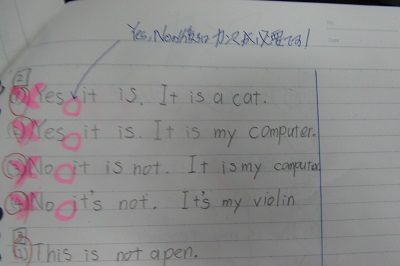 Yes, Noの後ろに カンマが必要です!
2
(1) Yes it is. It is a cat.
(2) Yes it is. It is my computer.
(3) No it is not. It is my computer.
(4) No it's not. It's my violin
3
(1) This is not a pen.